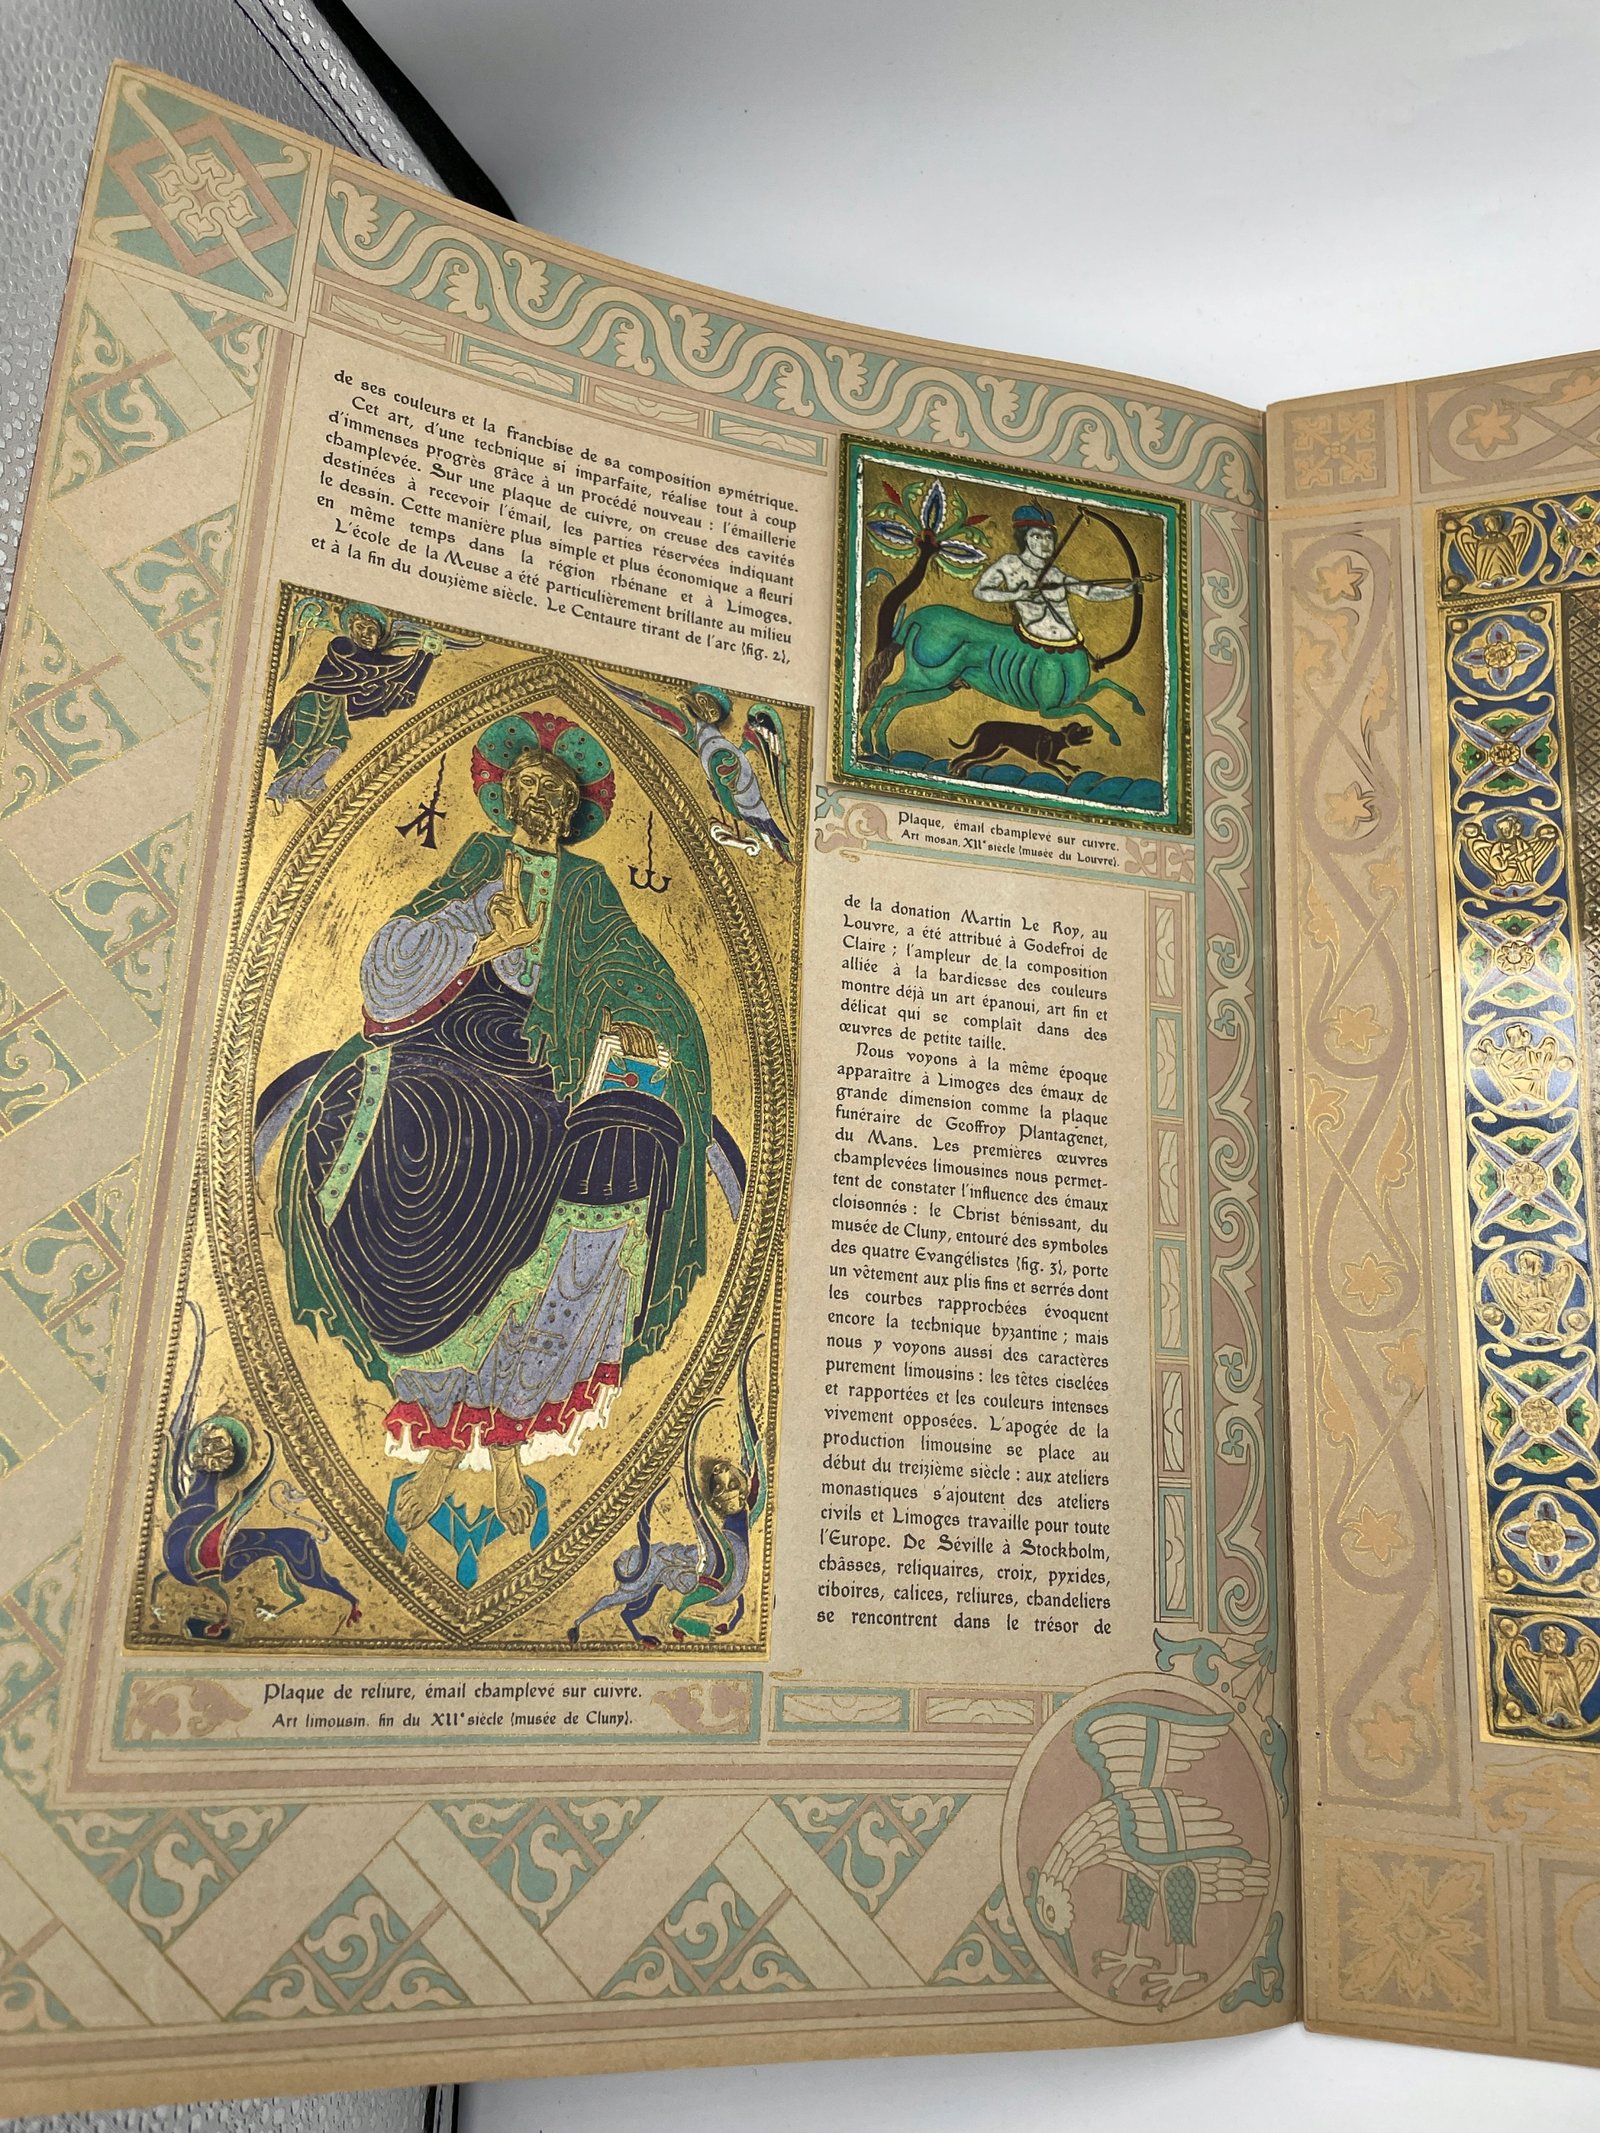 de ses couleurs et la franchise de sa composition symétrique.
Cet art, d'une technique si imparfaite, réalise tout à coup
d'immenses progrès grâce à un procédé nouveau : l'émaillerie
champlevée. Sur une plaque de cuivre, on creuse des cavités
destinées à recevoir l'émail, les parties réservées indiquant
le dessin. Cette manière plus simple et plus économique a fleuri
en même temps dans la région rhénane et à Limoges.
L'école de la Meuse a été particulièrement brillante au milieu
et à la fin du douzième siècle. Le Centaure tirant de l'arc (fig. 2),
Α
ω
Plaque de reliure, émail champlevé sur cuivre.
Art limousin, fin du XIIe siècle (musée de Cluny).
Plaque, émail champlevé sur cuivre.
Art mosan, XIIe siècle (musée du Louvre).
de la donation Martin Le Roy, au
Louvre, a été attribué à Godefroi de
Claire ; l'ampleur de la composition
alliée à la hardiesse des couleurs
montre déjà un art épanoui, art fin et
délicat qui se complaît dans des
œuvres de petite taille.
Nous voyons à la même époque
apparaître à Limoges des émaux de
grande dimension comme la plaque
funéraire de Geoffroy Plantagenet,
du Mans. Les premières œuvres
champlevées limousines nous permet-
tent de constater l'influence des émaux
cloisonnés : le Christ bénissant, du
musée de Cluny, entouré des symboles
des quatre Evangélistes (fig. 3), porte
un vêtement aux plis fins et serrés dont
les courbes rapprochées évoquent
encore la technique byzantine ; mais
nous y voyons aussi des caractères
purement limousins : les têtes ciselées
et rapportées et les couleurs intenses
vivement opposées. L'apogée de la
production limousine se place au
début du treizième siècle : aux ateliers
monastiques s'ajoutent des ateliers
civils et Limoges travaille pour toute
l'Europe. De Séville à Stockholm,
châsses, reliquaires, croix, pyxides,
ciboires, calices, reliures, chandeliers
se rencontrent dans le trésor de